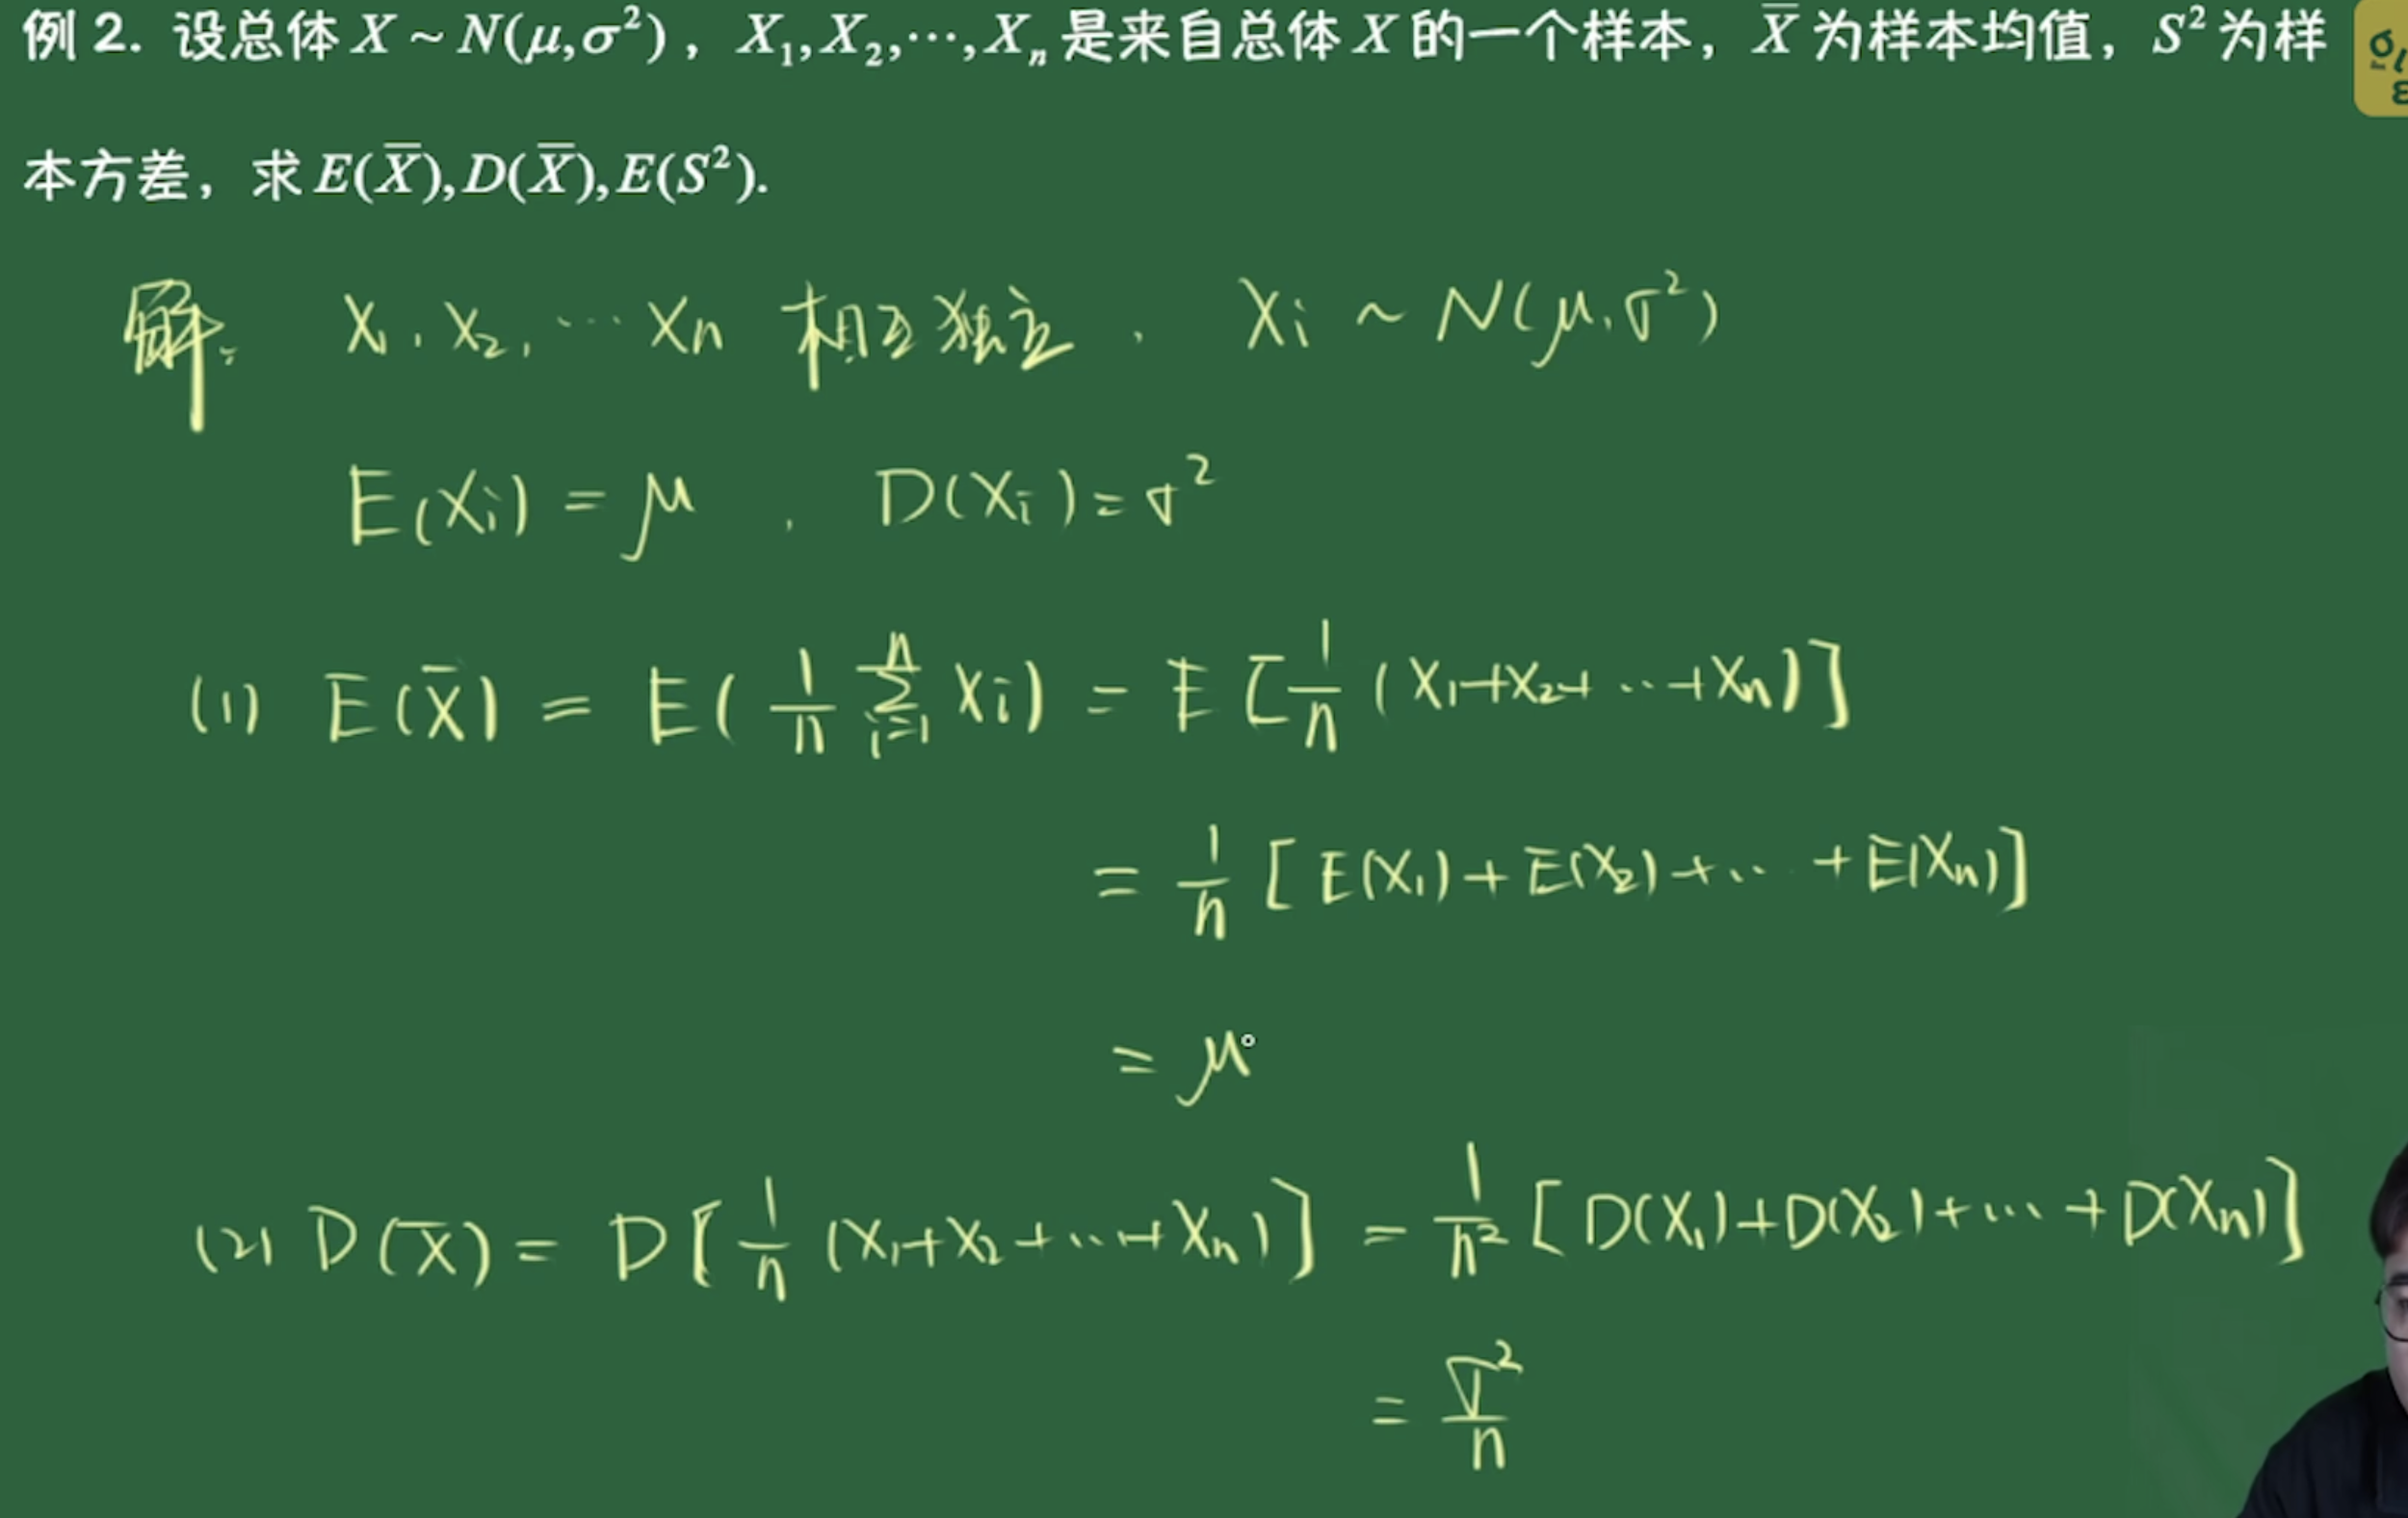 例 2. 设总体 X ~ N(μ,σ²)，X₁,X₂,⋯,Xₙ 是来自总体 X 的一个样本，X̅ 为样本均值，S² 为样
本方差，求 E(X̅),D(X̅),E(S²).
解: X₁, X₂, ⋯ Xn 相互独立, Xi ~ N(μ,σ²)
E(Xi) = μ , D(Xi) = σ²
(1) E(X̅) = E( 1/n ∑ⁿᵢ₌₁ Xi) = E [ 1/n ( X₁+X₂+ ⋯ +Xn)]
= 1/n [ E(X₁) + E(X₂) + ⋯ + E(Xn)]
= μ
(2) D(X̅) = D[ 1/n (X₁+X₂+⋯+Xn)] = 1/n² [ D(X₁)+D(X₂)+⋯+D(Xn)]
= σ²/n